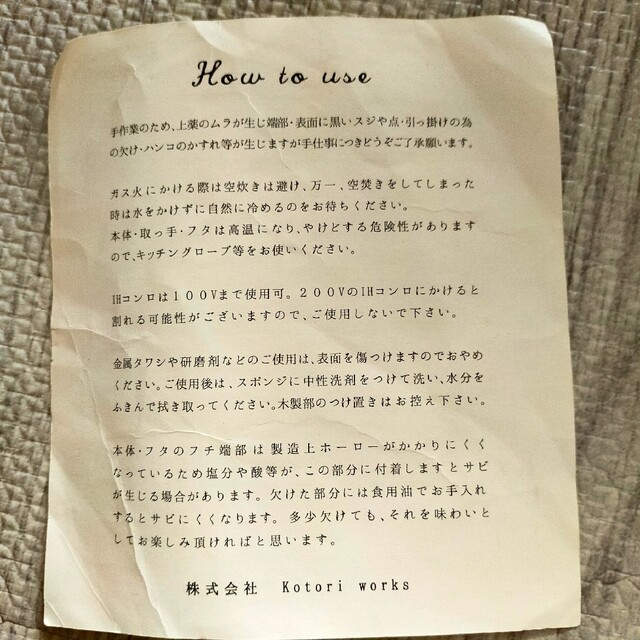 How to use
手作業のため、上薬のムラが生じ端部・表面に黒いスジや点・引っ掛けの為
の欠け・ハンコのかすれ等が生じますが手仕事につきどうぞご了承願います。
ガス火にかける際は空炊きは避け、万一、空焚きをしてしまった
時は水をかけずに自然に冷めるのをお待ちください。
本体・取っ手・フタは高温になり、やけどする危険性があります
ので、キッチングローブ等をお使いください。
IHコンロは１００Vまで使用可。２００VのIHコンロにかけると
割れる可能性がございますので、ご使用しないで下さい。
金属タワシや研磨剤などのご使用は、表面を傷つけますのでおやめ
ください。ご使用後は、スポンジに中性洗剤をつけて洗い、水分を
ふきんで拭き取ってください。木製部のつけ置きはお控え下さい。
本体・フタのフチ端部は製造上ホーローがかかりにくく
なっているため塩分や酸等が、この部分に付着しますとサビ
が生じる場合があります。欠けた部分には食用油でお手入れ
するとサビにくくなります。多少欠けても、それを味わいと
してお楽しみ頂ければと思います。
株式会社　Kotori works